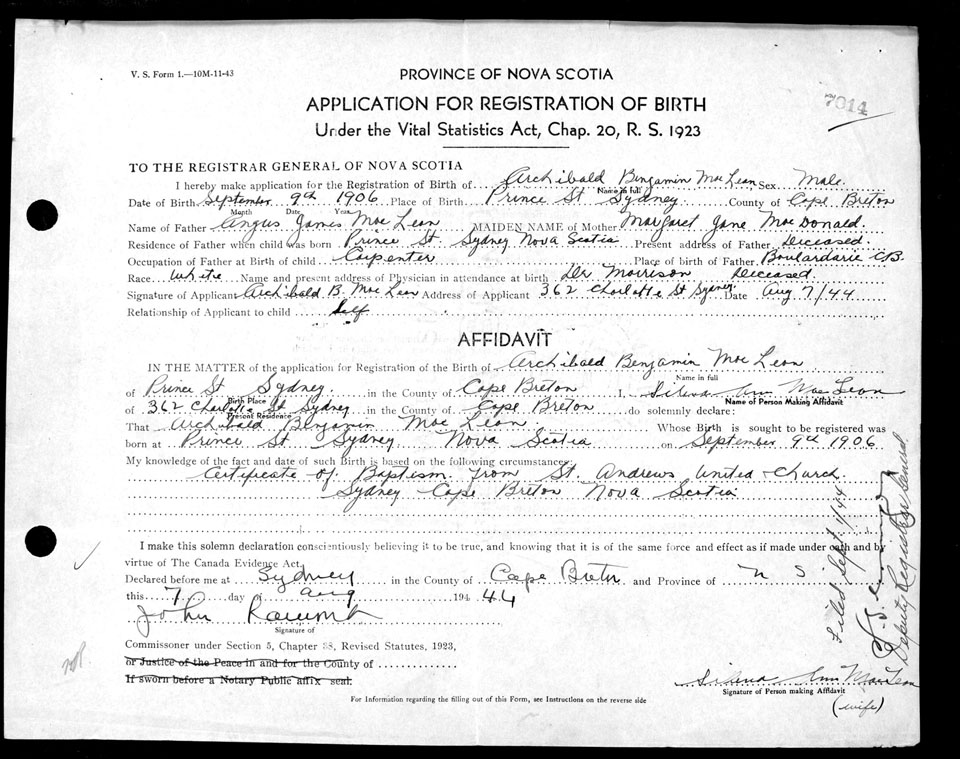 V. S. Form 1.—10M-11-43
PROVINCE OF NOVA SCOTIA
APPLICATION FOR REGISTRATION OF BIRTH
7014
Under the Vital Statistics Act, Chap. 20, R. S. 1923
TO THE REGISTRAR GENERAL OF NOVA SCOTIA
I hereby make application for the Registration of Birth of Archibald Benjamin MacLean Sex Male
Name in full
Date of Birth September 9th 1906 Place of Birth Prince St Sydney County of Cape Breton
Month Date Year
Name of Father Angus James MacLean MAIDEN NAME of Mother Margaret Jane MacDonald
Residence of Father when child was born Prince St. Sydney Nova Scotia Present address of Father Deceased.
Occupation of Father at Birth of child Carpenter Place of birth of Father Boulardarie C.B.
Race White Name and present address of Physician in attendance at birth Dr Morrison Deceased.
Signature of Applicant Archibald B. MacLean Address of Applicant 362 Charlotte St Sydney Date Aug 7/44
Relationship of Applicant to child Self
AFFIDAVIT
IN THE MATTER of the application for Registration of the Birth of Archibald Benjamin MacLean
Name in full
of Prince St Sydney. in the County of Cape Breton I, Ann MacLean
Birth Place Name of Person Making Affidavit
of 362 Charlotte St Sydney in the County of Cape Breton do solemnly declare:
Present Residence
That Archibald Benjamin MacLean. Whose Birth is sought to be registered was
born at Prince St Sydney Nova Scotia on September 9th 1906
My knowledge of the fact and date of such Birth is based on the following circumstances:
Certificate of Baptism from St. Andrews United Church.
Sydney Cape Breton Nova Scotia
I make this solemn declaration conscientiously believing it to be true, and knowing that it is of the same force and effect as if made under oath and by
virtue of The Canada Evidence Act.
Declared before me at Sydney in the County of Cape Breton and Province of N S
this 7 day of Aug 1944
John
Signature of
Commissioner under Section 5, Chapter 38, Revised Statutes, 1923,
or Justice of the Peace in and for the County of
If sworn before a Notary Public affix seal.
Ann MacLean
Signature of Person making Affidavit
(wife)
For Information regarding the filling out of this Form, see Instructions on the reverse side
Filed Sept 1/44
Deputy Registrar General